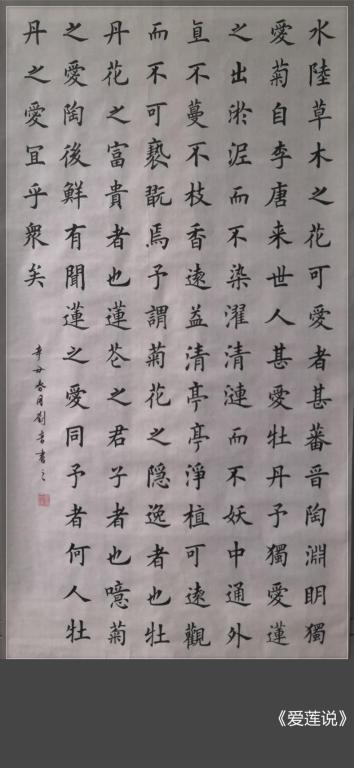 水陸草木之花可愛者甚蕃晉陶淵明獨
愛菊自李唐来世人甚愛牡丹予獨愛蓮
之出淤泥而不染濯清漣而不妖中通外
直不蔓不枝香遠益清亭亭淨植可遠觀
而不可褻翫焉予謂菊花之隱逸者也牡
丹花之富貴者也蓮花之君子者也噫菊
之愛陶後鮮有聞蓮之愛同予者何人牡
丹之愛宜乎衆矣
辛丑春月劉書之
《爱莲说》